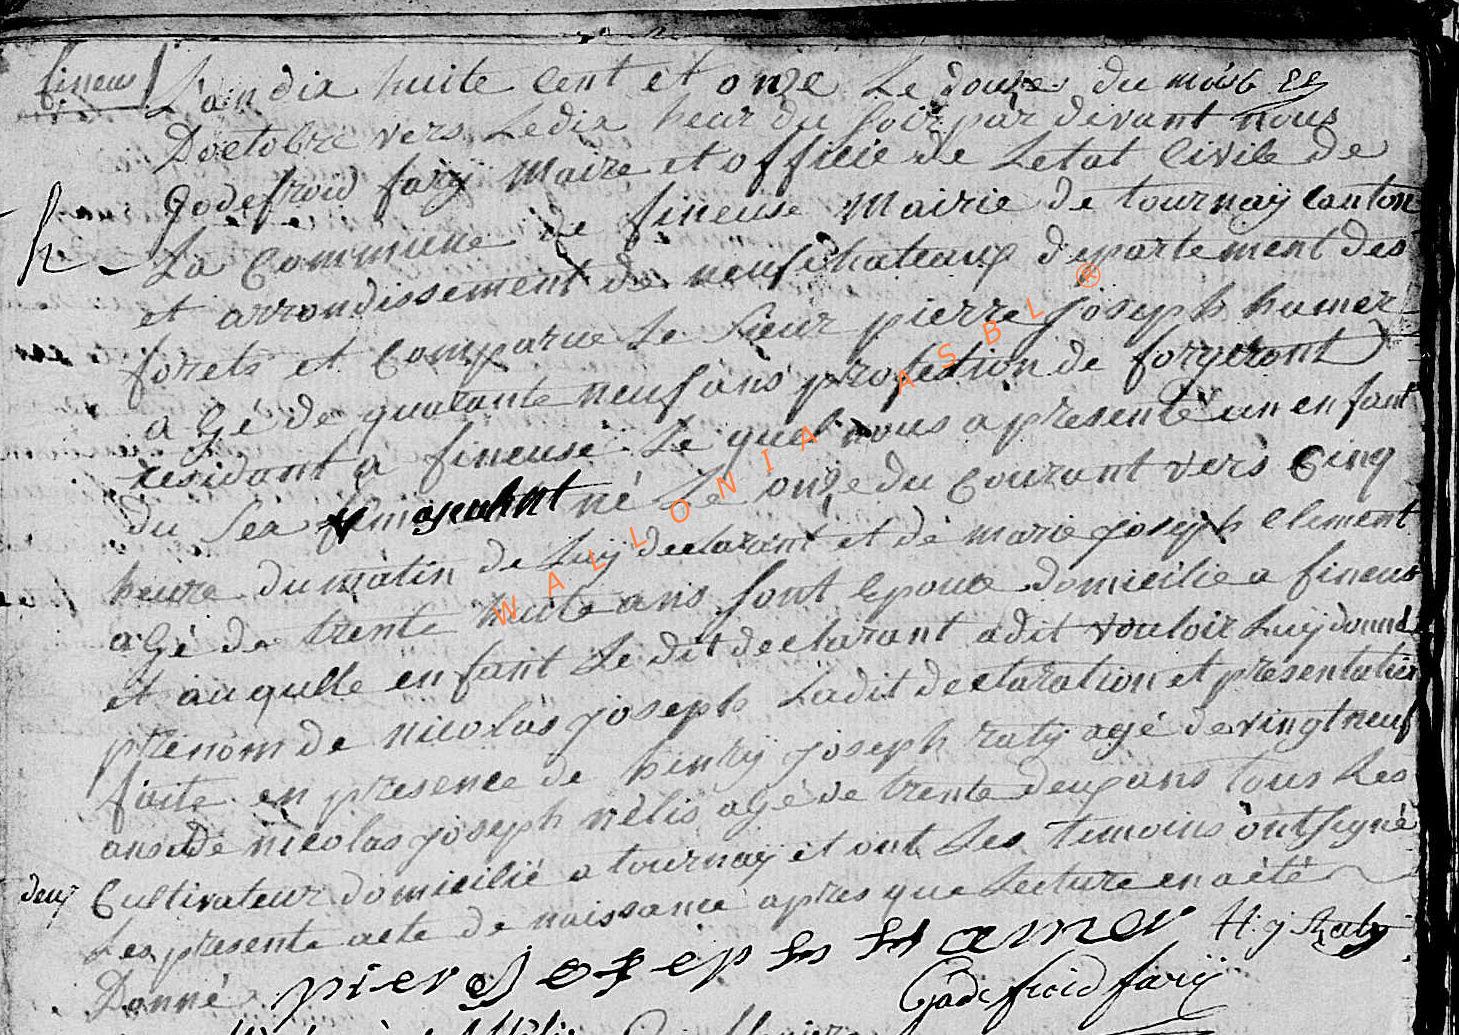 fineus
L'an dix huite Cent et onze Le douze du mois
Doctobre vers Le dix heur du soir par devant nous
Godefroid farÿ Maire et officie de Letat Civile de
La Commune de fineuse Mairie de tournaÿ Canton
et arrondissement de neufchateaux departement des
forets et Comparue Le Sieur pierre joseph hamer
a Gé de quarante neuf ans profession de forgeront
residant a fineuse Le quel nous a presenté un enfant
du Sex né Le onze du Courant vers Cinq
heure du matin de Luÿ declarant et de marie joseph Clement
a Gé de trente huite ans sont Epouse domicilie a fineus
et auqulle enfant Le dit declarant a dit vouloir Luÿ donné
prenom de nicolas joseph Ladit declaration et presentation
faite en presence de henrÿ joseph ratÿ agé de vingt neuf
ans et de nicolas joseph nélis a Gé de trente deux ans tous Les
deux Cultivateur domicilié a tournaÿ et ont Les temoins ont signé
Les presente acte de naissance apres que Lecture en a été
Donné
pier Joseph Hamer
H. j Raty
Godefroid farÿ
WALLONIA ASBL ®